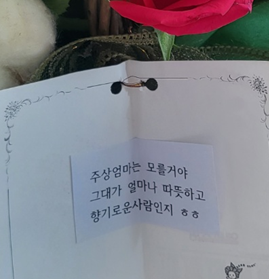 주상엄마는 모를거야
그대가 얼마나 따뜻하고
향기로운사람인지 ㅎㅎ